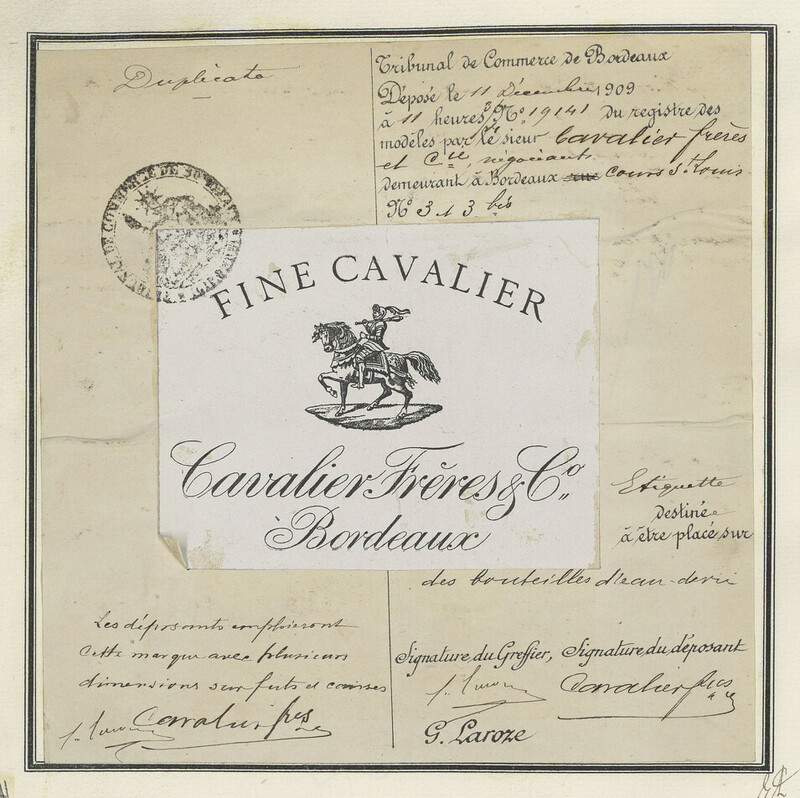 Duplicata
Tribunal de Commerce de Bordeaux
Déposé le 11 Décembre 1909
à 11 heures N° 19141 du registre des
modèles par le sieur Cavalier frères
et Cie, négociants
demeurant à Bordeaux rue cours St Louis
N° 3 et 3 bis
TRIBUNAL DE COMMERCE DE BORDEAUX
FINE CAVALIER
Cavalier Frères & Co
à Bordeaux
Etiquette
destinée
à être placé sur
des bouteilles d'eau-de-vie
Les déposants emploieront
cette marque avec plusieurs
dimensions sur futs et caisses
Cavalier fres
Signature du Greffier, Signature du déposant
Cavalier fres
G. Laroze